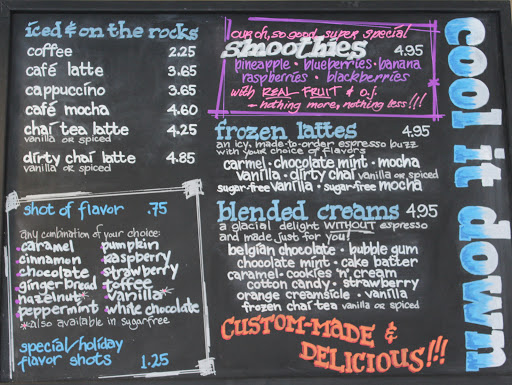 iced & on the rocks
coffee 2.25
café latte 3.65
cappuccino 3.65
café mocha 4.60
chai tea latte 4.25
vanilla or spiced
dirty chai latte 4.85
vanilla or spiced
shot of flavor .75
any combination of your choice:
caramel pumpkin
cinnamon raspberry
chocolate strawberry
gingerbread toffee
hazelnut* vanilla*
peppermint white chocolate
*also available in sugarfree
special/holiday
flavor shots 1.25
our oh, so good super special
smoothies 4.95
pineapple • blueberries • banana
raspberries • blackberries
with REAL FRUIT & o.j.
- nothing more, nothing less!!!
frozen lattes 4.95
an icy, made-to-order espresso buzz
with your choice of flavors
carmel • chocolate mint • mocha
vanilla • dirty chai vanilla or spiced
sugar-free vanilla • sugar-free mocha
blended creams 4.95
a glacial delight WITHOUT espresso
and made just for you!
belgian chocolate • bubble gum
chocolate mint • cake batter
caramel • cookies 'n' cream
cotton candy • strawberry
orange creamsicle • vanilla
frozen chai tea vanilla or spiced
CUSTOM-MADE &
DELICIOUS!!!
cool it down